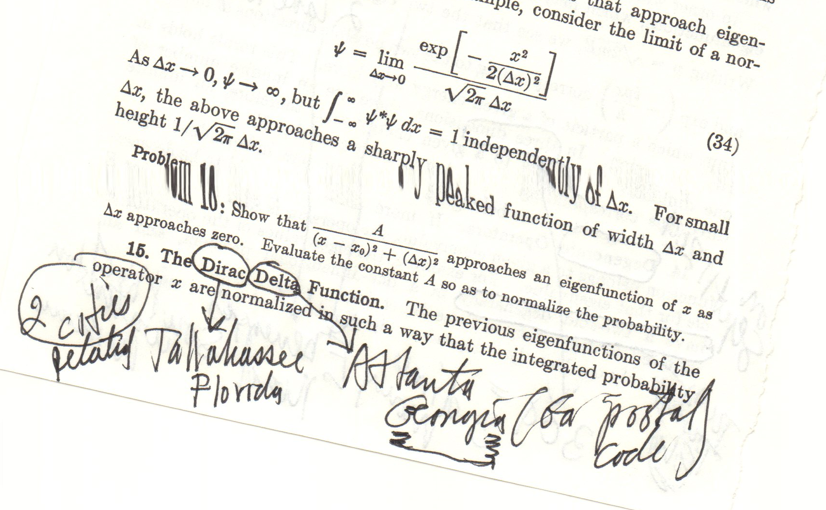 that approach eigen-
consider the limit of a nor-
ψ = lim Δx→0 exp [ − x² / 2(Δx)² ] / √2π Δx (34)
As Δx → 0, ψ → ∞, but ∫ −∞ ∞ ψ*ψ dx = 1 independently of Δx. For small
Δx, the above approaches a sharply peaked function of width Δx and
height 1/√2π Δx.
Problem 16: Show that A / (x − x₀)² + (Δx)² approaches an eigenfunction of x as
Δx approaches zero. Evaluate the constant A so as to normalize the probability.
15. The Dirac Delta Function. The previous eigenfunctions of the
operator x are normalized in such a way that the integrated probability
2 cities
Tallahassee
Florida
Atlanta
Georgia (Ga postal
code)